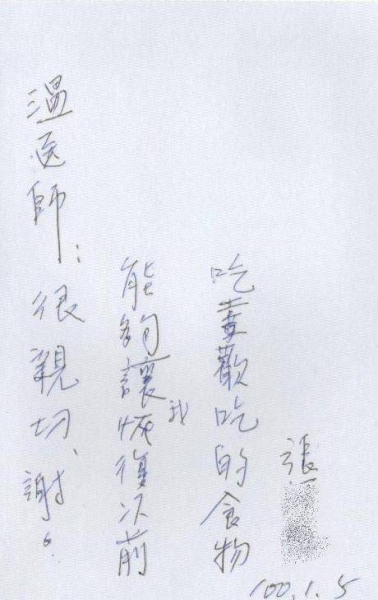 温医師:很親切、謝。
能夠讓我恢復以前
吃喜歡吃的食物
張
100.1.5